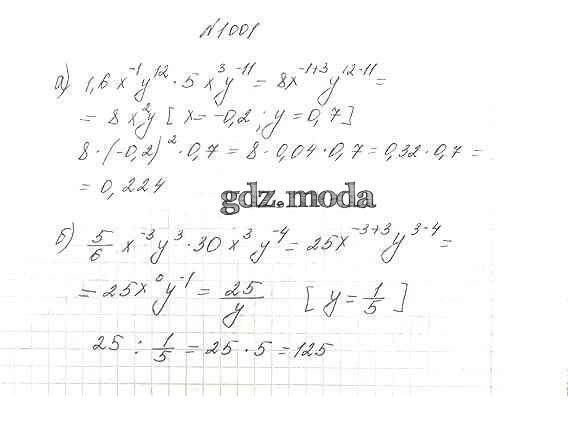 №1001
а) 1,6 x⁻¹y¹² · 5 x³y⁻¹¹ = 8x⁻¹⁺³ y¹²⁻¹¹ =
= 8 x²y [ x = -0,2 ; y = 0,7 ]
8 · (-0,2)² · 0,7 = 8 · 0,04 · 0,7 = 0,32 · 0,7 =
= 0,224
gdz.moda
б) 5/6 x⁻³y³ · 30 x³y⁻⁴ = 25x⁻³⁺³ y³⁻⁴ =
= 25x⁰y⁻¹ = 25/y [ y = 1/5 ]
25 : 1/5 = 25 · 5 = 125